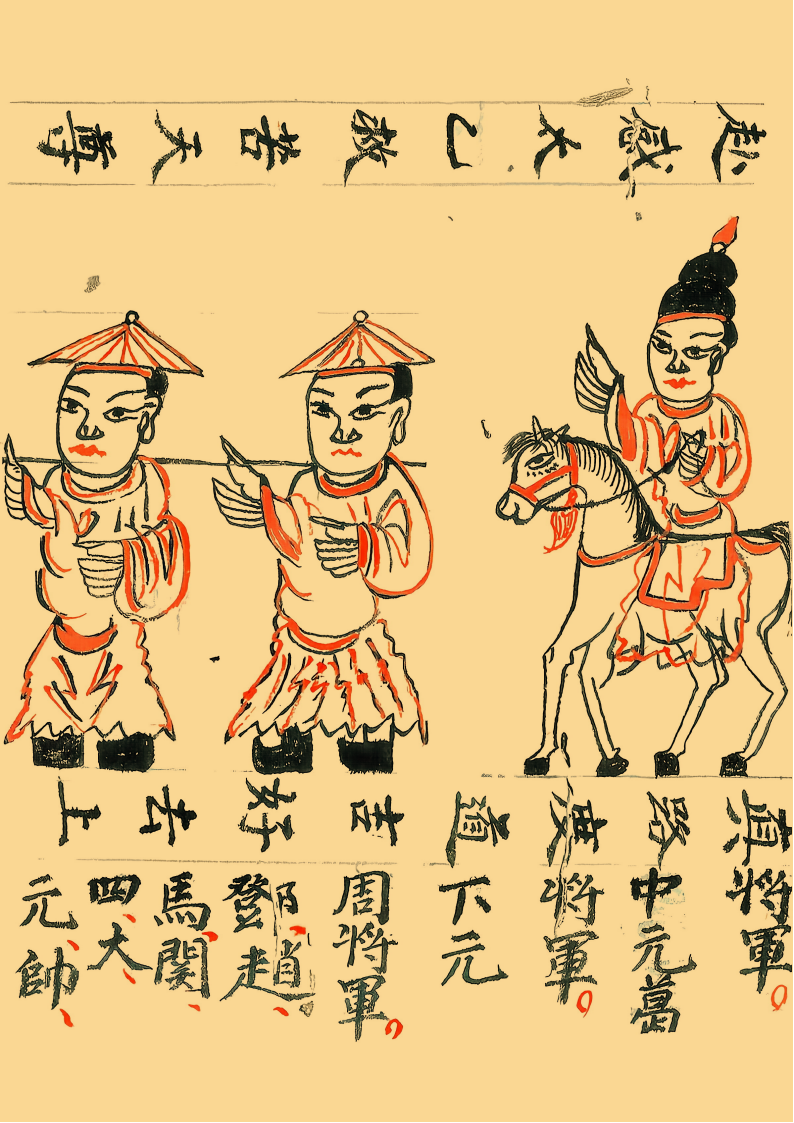 赴感太乙救苦天尊
真路度道言好去上
將軍。
中元葛
將軍。
下元
周將軍。
鄧、趙、
馬、關、
四、大、
元、帥、